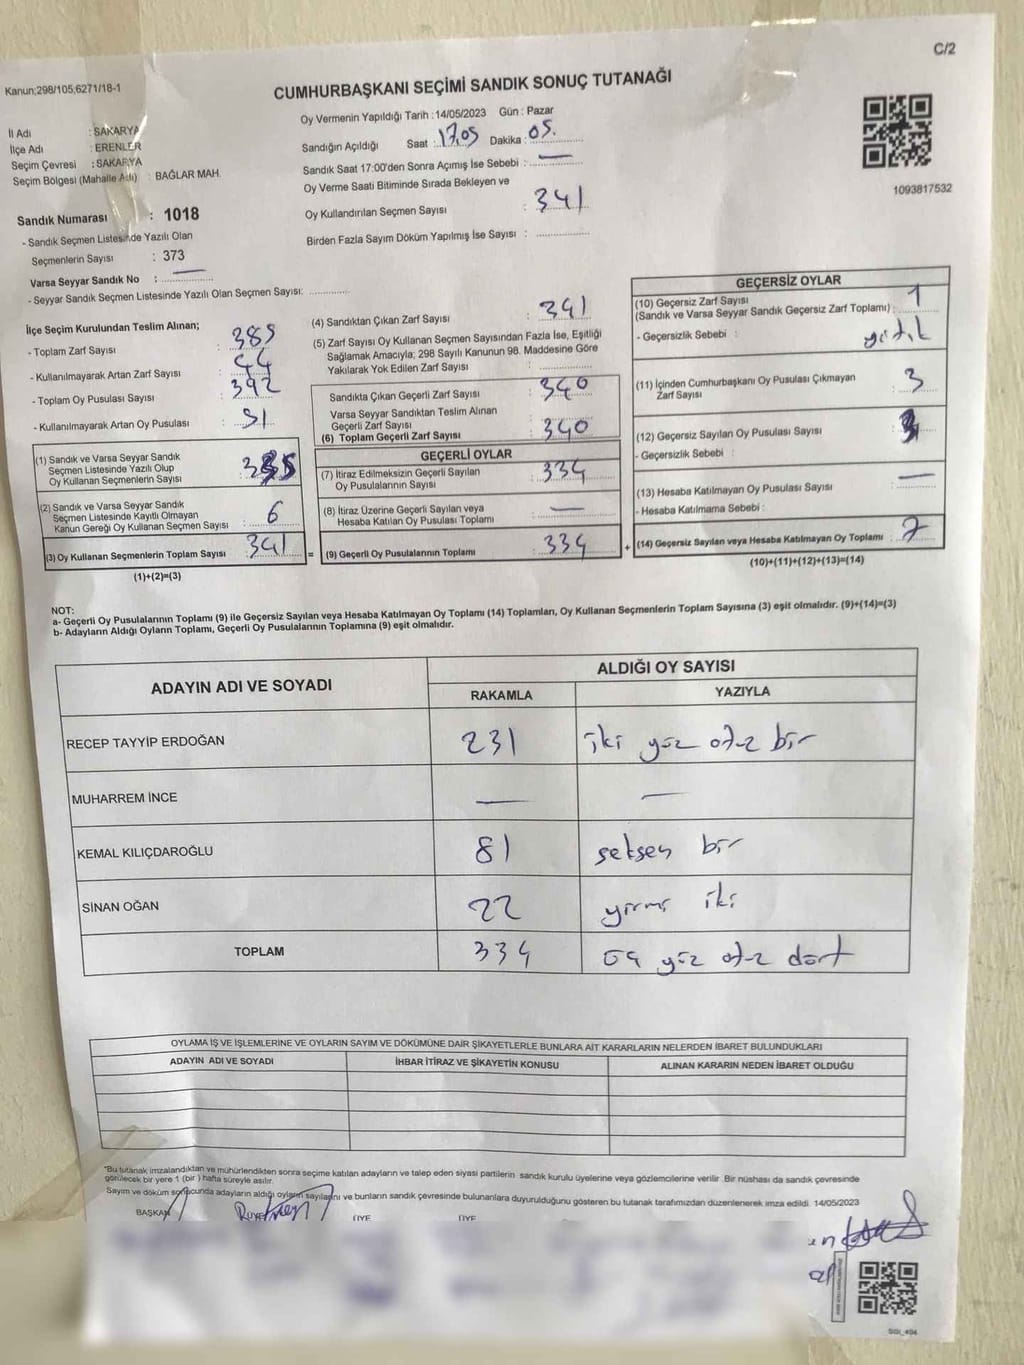 C/2
Kanun;298/105;6271/18-1
CUMHURBAŞKANI SEÇİMİ SANDIK SONUÇ TUTANAĞI
İl Adı : SAKARYA
İlçe Adı : ERENLER
Seçim Çevresi : SAKARYA
Seçim Bölgesi (Mahalle Adı) : BAĞLAR MAH.
Sandık Numarası : 1018
- Sandık Seçmen Listesinde Yazılı Olan
Seçmenlerin Sayısı : 373
Varsa Seyyar Sandık No : —
- Seyyar Sandık Seçmen Listesinde Yazılı Olan Seçmen Sayısı:
Oy Vermenin Yapıldığı Tarih : 14/05/2023 Gün : Pazar
Sandığın Açıldığı Saat : 17,05 Dakika : 05.
Sandık Saat 17:00'den Sonra Açımış İse Sebebi : —
Oy Verme Saati Bitiminde Sırada Bekleyen ve
Oy Kullandırılan Seçmen Sayısı : 341
Birden Fazla Sayım Döküm Yapılmış İse Sayısı :
1093817532
İlçe Seçim Kurulundan Teslim Alınan;
- Toplam Zarf Sayısı : 385
- Kullanılmayarak Artan Zarf Sayısı : 44
- Toplam Oy Pusulası Sayısı : 392
- Kullanılmayarak Artan Oy Pusulası : 51
(1) Sandık ve Varsa Seyyar Sandık
Seçmen Listesinde Yazılı Olup
Oy Kullanan Seçmenlerin Sayısı : 335
(2) Sandık ve Varsa Seyyar Sandık
Seçmen Listesinde Kayıtlı Olmayan
Kanun Gereği Oy Kullanan Seçmen Sayısı : 6
(3) Oy Kullanan Seçmenlerin Toplam Sayısı : 341
(1)+(2)=(3)
(4) Sandıktan Çıkan Zarf Sayısı : 341
(5) Zarf Sayısı Oy Kullanan Seçmen Sayısından Fazla İse, Eşitliği
Sağlamak Amacıyla; 298 Sayılı Kanunun 98. Maddesine Göre
Yakılarak Yok Edilen Zarf Sayısı :
Sandıkta Çıkan Geçerli Zarf Sayısı : 340
Varsa Seyyar Sandıktan Teslim Alınan
Geçerli Zarf Sayısı :
(6) Toplam Geçerli Zarf Sayısı : 340
GEÇERLİ OYLAR
(7) İtiraz Edilmeksizin Geçerli Sayılan
Oy Pusulalarının Sayısı : 334
(8) İtiraz Üzerine Geçerli Sayılan veya
Hesaba Katılan Oy Pusulası Toplamı : —
= (9) Geçerli Oy Pusulalarının Toplamı : 334
GEÇERSİZ OYLAR
(10) Geçersiz Zarf Sayısı
(Sandık ve Varsa Seyyar Sandık Geçersiz Zarf Toplamı) : 1
- Geçersizlik Sebebi : yırtık
(11) İçinden Cumhurbaşkanı Oy Pusulası Çıkmayan
Zarf Sayısı : 3
(12) Geçersiz Sayılan Oy Pusulası Sayısı : 3
- Geçersizlik Sebebi :
(13) Hesaba Katılmayan Oy Pusulası Sayısı : —
- Hesaba Katılmama Sebebi :
+ (14) Geçersiz Sayılan veya Hesaba Katılmayan Oy Toplamı : 7
(10)+(11)+(12)+(13)=(14)
NOT:
a- Geçerli Oy Pusulalarının Toplamı (9) ile Geçersiz Sayılan veya Hesaba Katılmayan Oy Toplamı (14) Toplamları, Oy Kullanan Seçmenlerin Toplam Sayısına (3) eşit olmalıdır. (9)+(14)=(3)
b- Adayların Aldığı Oyların Toplamı, Geçerli Oy Pusulalarının Toplamına (9) eşit olmalıdır.
ADAYIN ADI VE SOYADI ALDIĞI OY SAYISI
RAKAMLA YAZIYLA
RECEP TAYYİP ERDOĞAN 231 iki yüz otuz bir
MUHARREM İNCE — —
KEMAL KILIÇDAROĞLU 81 seksen bir
SİNAN OĞAN 22 yirmi iki
TOPLAM 334 üç yüz otuz dört
OYLAMA İŞ VE İŞLEMLERİNE VE OYLARIN SAYIM VE DÖKÜMÜNE DAİR ŞİKAYETLERLE BUNLARA AİT KARARLARIN NELERDEN İBARET BULUNDUKLARI
ADAYIN ADI VE SOYADI İHBAR İTİRAZ VE ŞİKAYETİN KONUSU ALINAN KARARIN NEDEN İBARET OLDUĞU
*Bu tutanak imzalandıktan ve mühürlendikten sonra seçime katılan adayların ve talep eden siyasi partilerin sandık kurulu üyelerine veya gözlemcilerine verilir. Bir nüshası da sandık çevresinde
görülecek bir yere 1 (bir) hafta süreyle asılır.
Sayım ve döküm sonucunda adayların aldığı oyların sayılarını ve bunların sandık çevresinde bulunanlara duyurulduğunu gösteren bu tutanak tarafımızdan düzenlenerek imza edildi. 14/05/2023
BAŞKAN ÜYE ÜYE